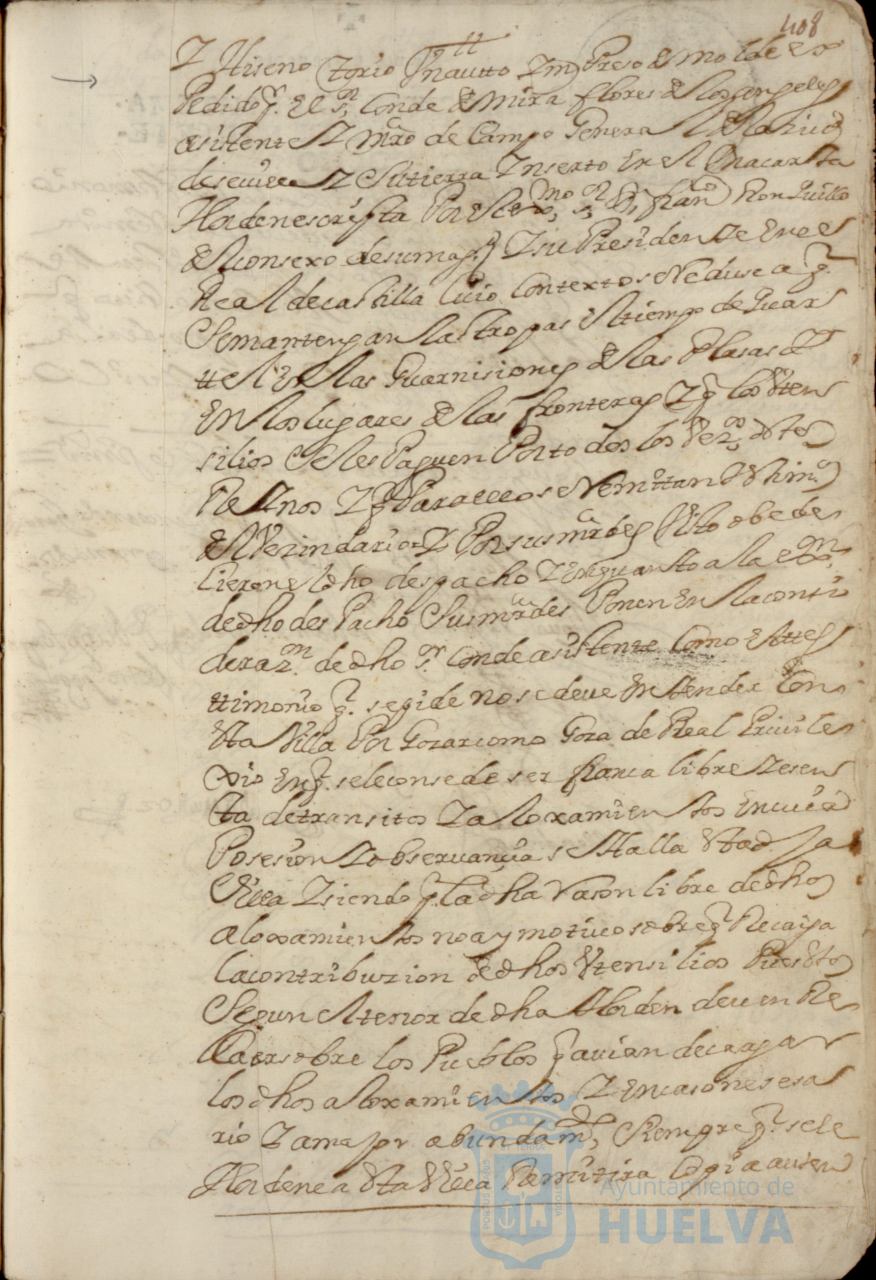 408
Y Hiseno torio Un autto Ympreso de molde ex
Pedido q. El sr. Conde de mira flores de los angeles
asistente Y mro de Campo General de la ziud
de seuilla Y Su tierra Ynserto En el Una carta
Horden escrifta Por el exmo sr Dn franco Ronquillo
del consexo de su magd Y su Presidente En el
Real de castilla Cuio Contexto se Reduse a q.
Se mantengan las tropas el tiempo de Quar
ttel En las Guarnisiones de las Plasas
En los lugares de las fronteras Y q los Vten
silios Se les Paguen Por todos los Vezos destos
Reynos Y q Para ello se Remittan
del Vezindario Y Por sus mrdes Visto obede
cieron el dho despacho Y en quanto a la
de dho des Pacho Sus mrdes Ponen En la consi
derazn. de dho sr. Conde asistente Como este tes
ttimonio q. se pide no se deue Entender Con
Esta Villa Por Gozar como Goza de Real Priuile
xio En q. se le consede ser franca libre Y esen
ta de transitos Y aloxamientos En cuia
Posesion Y obseruancia se Halla Esta dha
Villa Y siendo q. la dha Rason libre de dhos
aloxamientos no ay motiuo sobre q Recaiga
la contribuzion de dhos Vtensilios Pues estos
Segun el tenor de dha Horden deuen Re
Caer sobre los Pueblos q auian de cargar
los dhos aloxamientos Y En caso nesesa
rio Y a mayor abundamto Siempre q. se le
Hordene a Esta Villa Remitira Copia auten
Ayuntamiento de
HUELVA